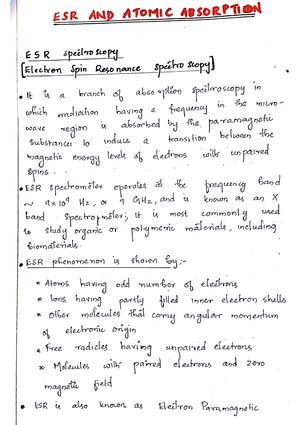 ESR AND ATOMIC ABSORPTION
ESR spectroscopy
[Electron Spin Resonance Spectroscopy]
• It is a branch of absorption spectroscopy in
which radiation having a frequency in the micro-
wave region is absorbed by the paramagnetic
substances to induce a transition between the
magnetic energy levels of electrons with unpaired
spins.
• ESR spectrometer operates at the frequency band
~ 9x10⁹ Hz, or 9 GHz, and is known as an X
band spectrometer, it is most commonly used
to study organic or polymeric materials, including
biomaterials.
• ESR phenomenon is shown by:-
* Atoms having odd number of electrons
* Ions having partly filled inner electron shells
* Other molecules that carry angular momentum
of electronic origin
* Free radicles having unpaired electrons
* Molecules with paired electrons and zero
magnetic field
• ESR is also known as Electron Paramagnetic